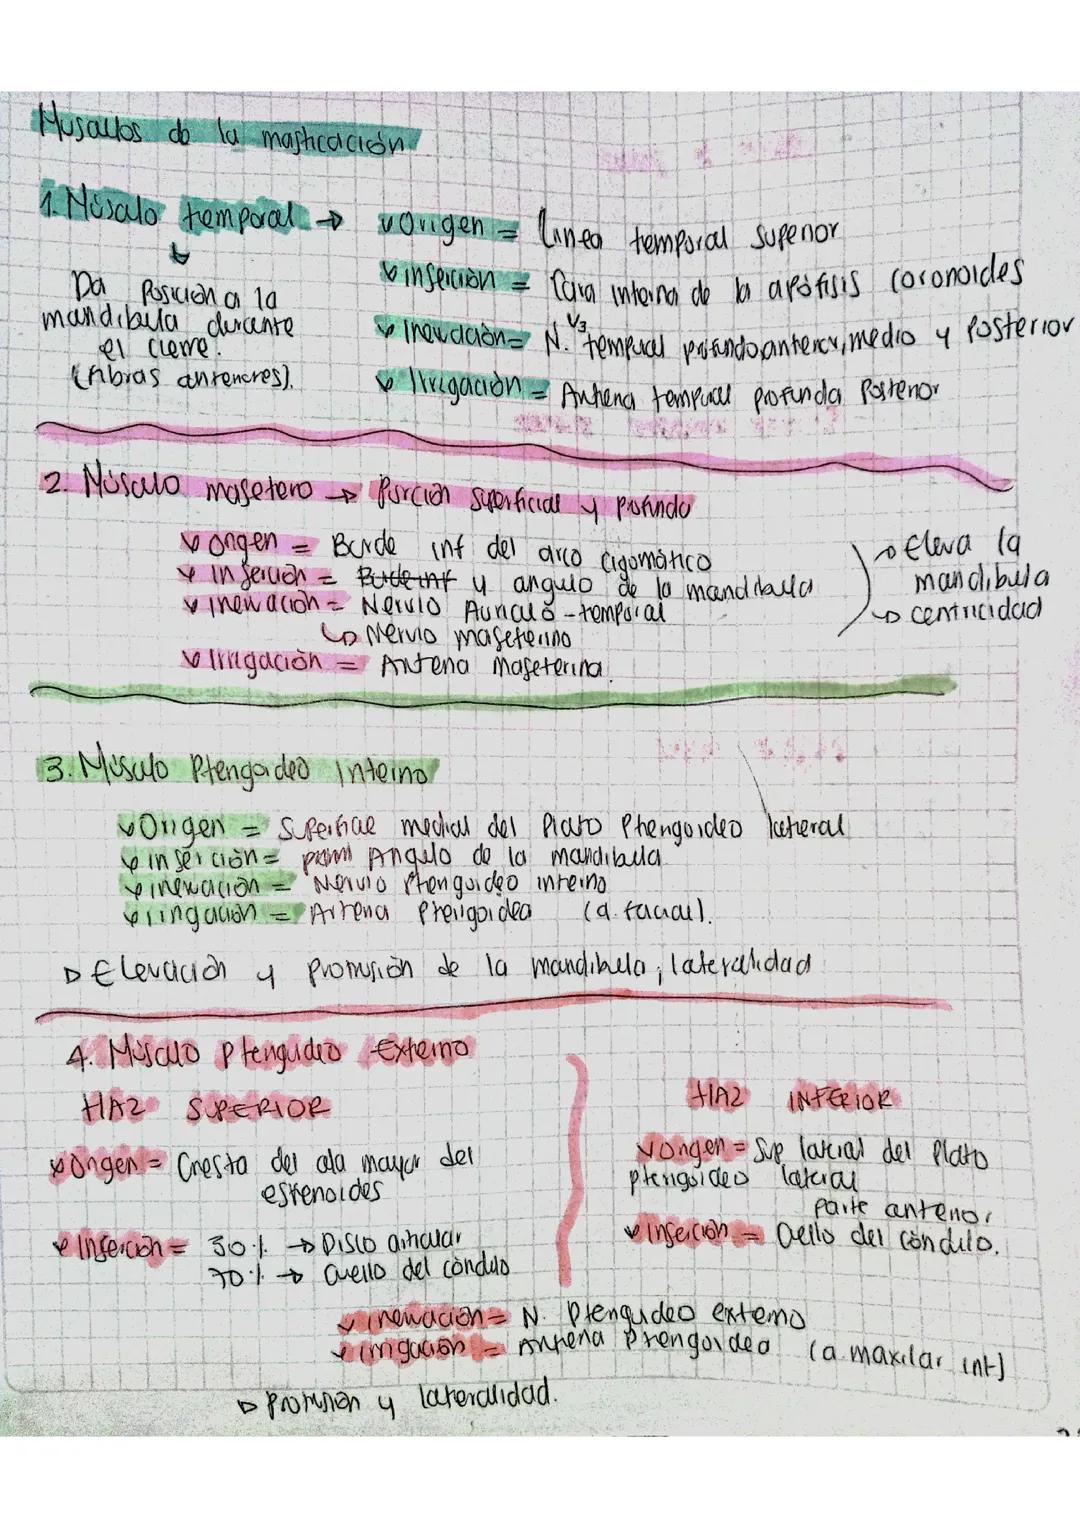 Músculos de la masticación
1. Músculo temporal → Origen = Linea temporal superior
Da posición a la
mandibula durante
el cierre.
(fibras anteriores).
Inserción = Cara interna de la apófisis coronoides
Inervación = N. V3 temporal profundo anterior, medio y posterior
Irrigación = Arteria temporal profunda posterior
2. Músculo masetero → Porción superficial y profunda
Origen = Borde inf del arco cigomático
Inserción = Borde inf y angulo de la mandibula
Inervación = Nervio Auriculo-temporal
↳ Nervio maseterino
Irrigación = Arteria maseterina.
→ Eleva la
mandibula
→ centricidad
3. Músculo Pterigoideo Interno
Origen = Superficie medial del Plato Pterigoideo lateral
Inserción = Angulo de la mandibula
Inervación = Nervio Pterigoideo interno
Irrigación = Arteria Pterigoidea (a. facial).
▷ Elevación y protrusión de la mandibula, lateralidad
4. Músculo Pterigoideo Externo
HAZ SUPERIOR
Origen = Cresta del ala mayor del
esfenoides
Inserción = 30% → Disco articular
70% → Cuello del cóndilo
HAZ INFERIOR
Origen = Sup lateral del Plato
pterigoideo lateral
parte anterior
Inserción = Cuello del cóndilo.
Inervación = N. Pterigoideo externo
Irrigación = Arteria Pterigoidea (a. maxilar int)
▷ Protrusión y lateralidad.